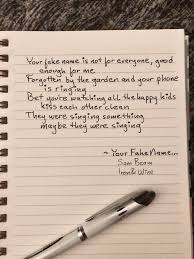 Your fake name is not for everyone, good
enough for me
Forgotten by the garden and your phone
is ringing
Bet you're watching all the happy kids
kiss each other clean
They were singing something
maybe they were singing
~ Your Fake Name...
Sam Beam
Iron & Wine